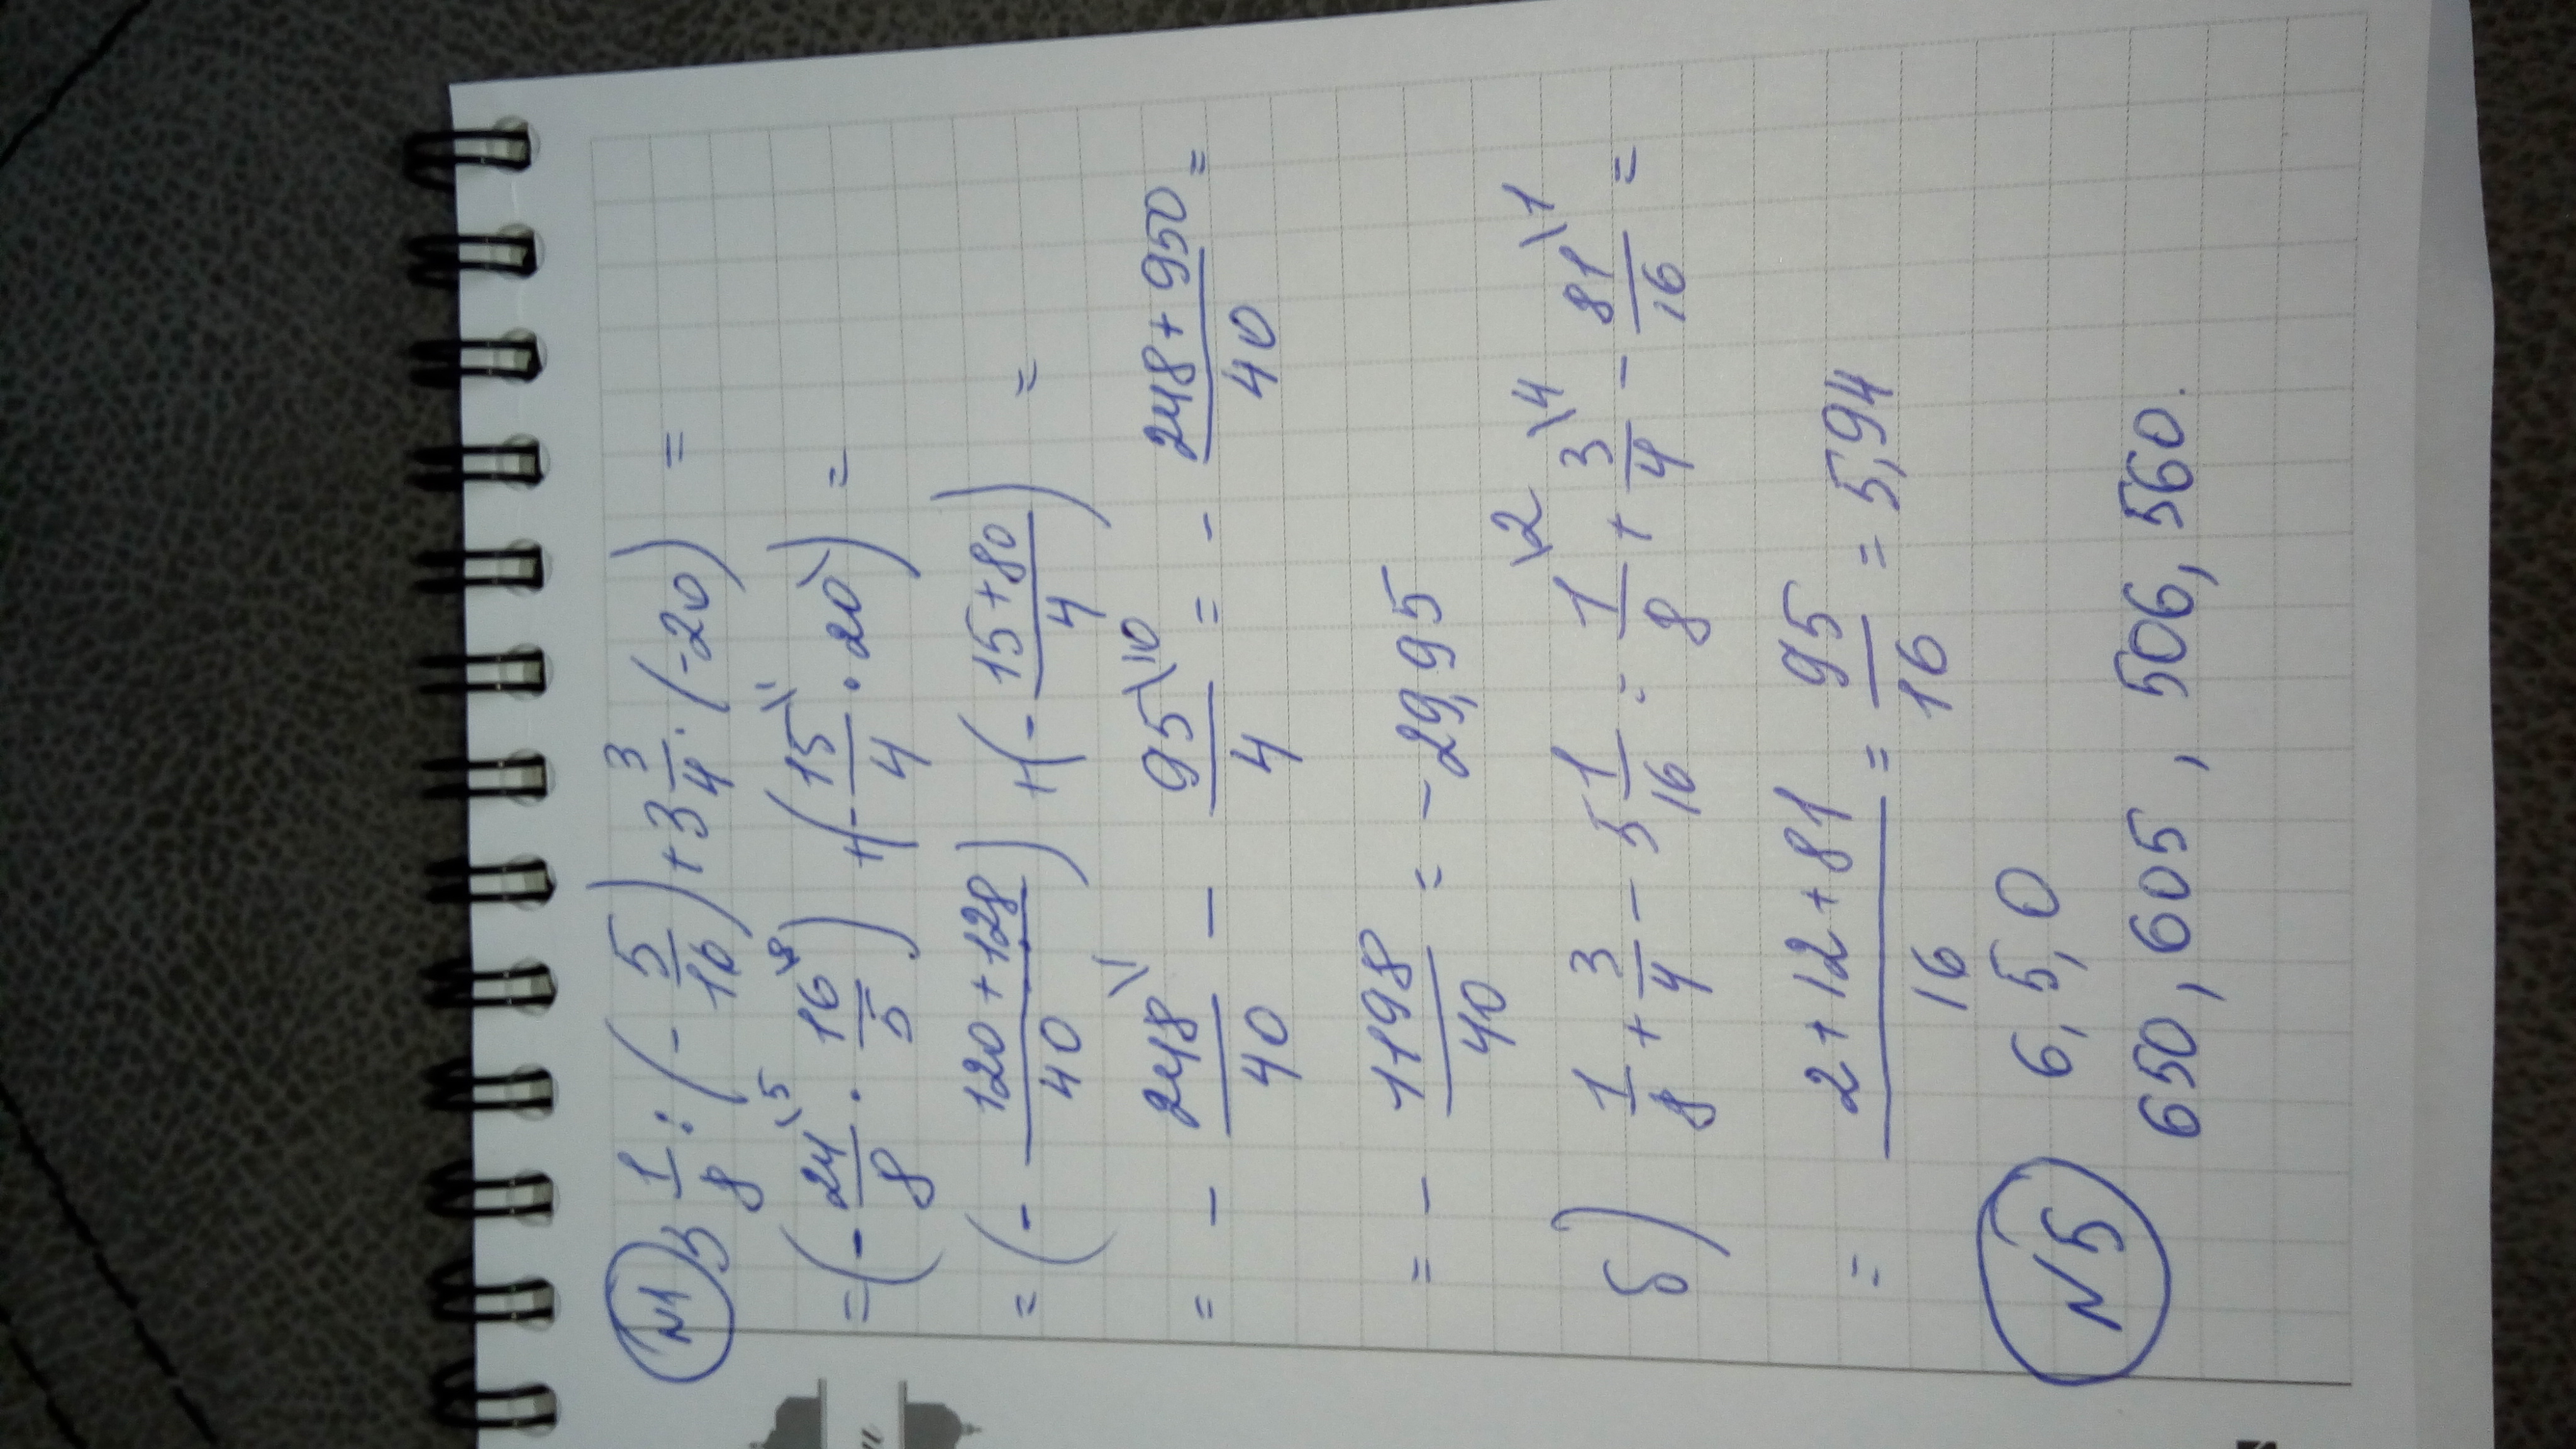 №1 3 1/8 : (- 5/16) + 3 3/4 · (-20) =
= (- 24/8 \5 · 16/5 \8) + (- 15/4 \1 · 20\) =
= (- 120+128/40) + (- 15+80/4) =
= - 248/40 \1 - 95/4 \10 = - 248+950/40 =
= - 1198/40 = -29,95
б) 1/8 + 3/4 - 5 1/16 = 1/8 \2 + 3/4 \4 - 81/16 \1 =
= 2+12+81/16 = 95/16 = 5,94
№5 6, 5, 0
650, 605, 506, 560.